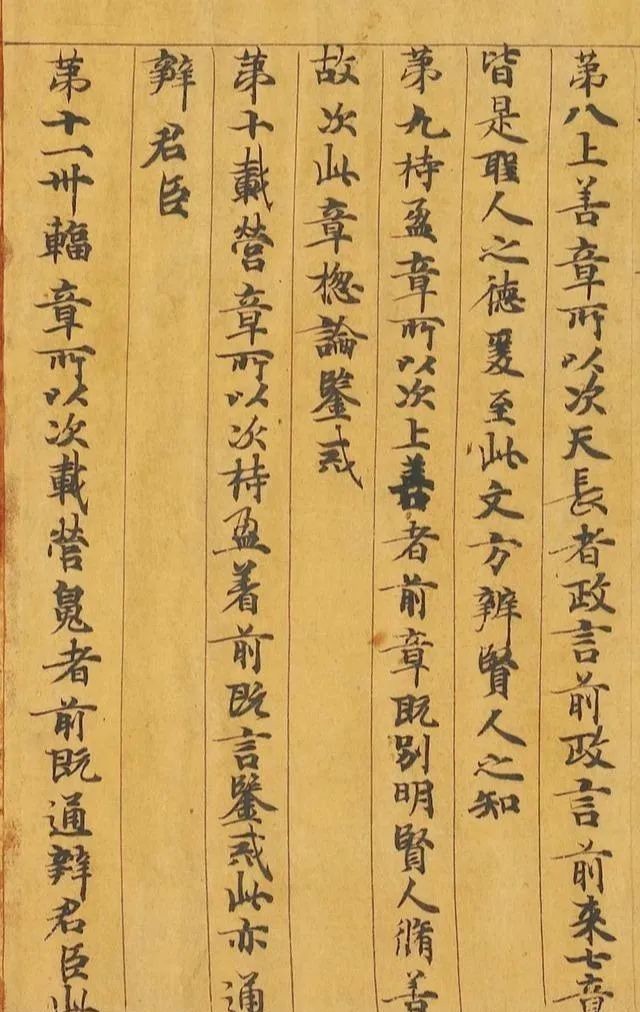 第八上善章所以次天長者政言前政言前来七章
皆是聖人之徳爰至此文方辨賢人之知
第九持盈章所以次上善者前章既別明賢人脩善
故次此章揔論鑒戒
第十載營章所以次持盈着前既言鑒戒此亦通
辨君臣
第十一卅輻章所以次載營魄者前既通辨君臣此